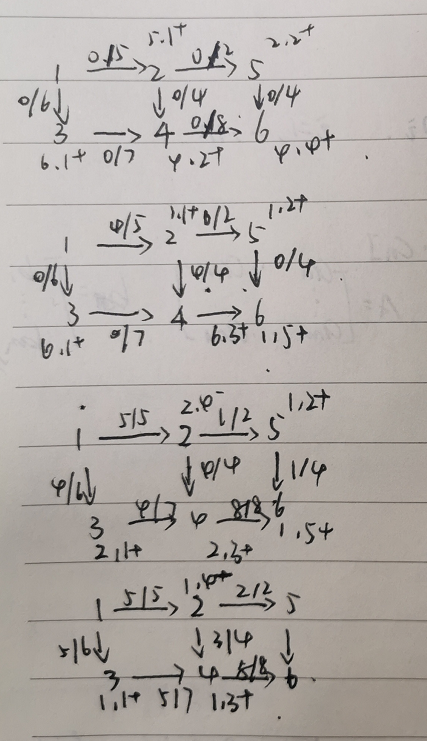 5.1+ 2.2+
1 0/5 → 2 0/2 → 5
0/6 ↓ ↓ 0/4 ↓ 0/4
3 → 4 0/8 → 6
6.1+ 0/7 4.2+ 4.4+
1.1+ 1.2+
1 4/5 → 2 0/2 → 5
0/6 ↓ ↓ 4/4 ↓ 0/4
3 → 4 → 6
6.1+ 0/7 6.3+ 1.5+
2.4- 1.2+
1 5/5 → 2 1/2 → 5
4/6 ↓ ↓ 4/4 ↓ 1/4
3 4/7 → 4 8/8 → 6
2.1+ 2.3+ 1.5+
1.4+
1 5/5 → 2 2/2 → 5
5/6 ↓ ↓ 3/4 ↓
3 → 4 8/8 → 6
1.1+ 5/7 1.3+